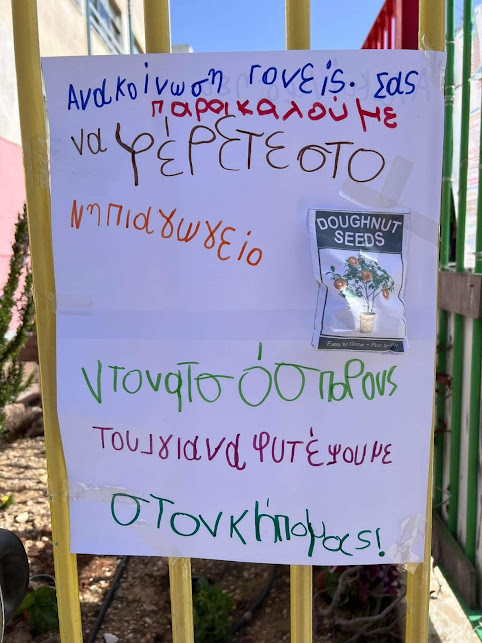 Ανακοίνωση γονείς. Σας
παρακαλούμε
να φέρετε στο
Νηπιαγωγείο
DOUGHNUT
SEEDS
Easy to Grow - Fun to
ντονατσόσπορους
τους για να φυτέψουμε
στον κήπο μας!